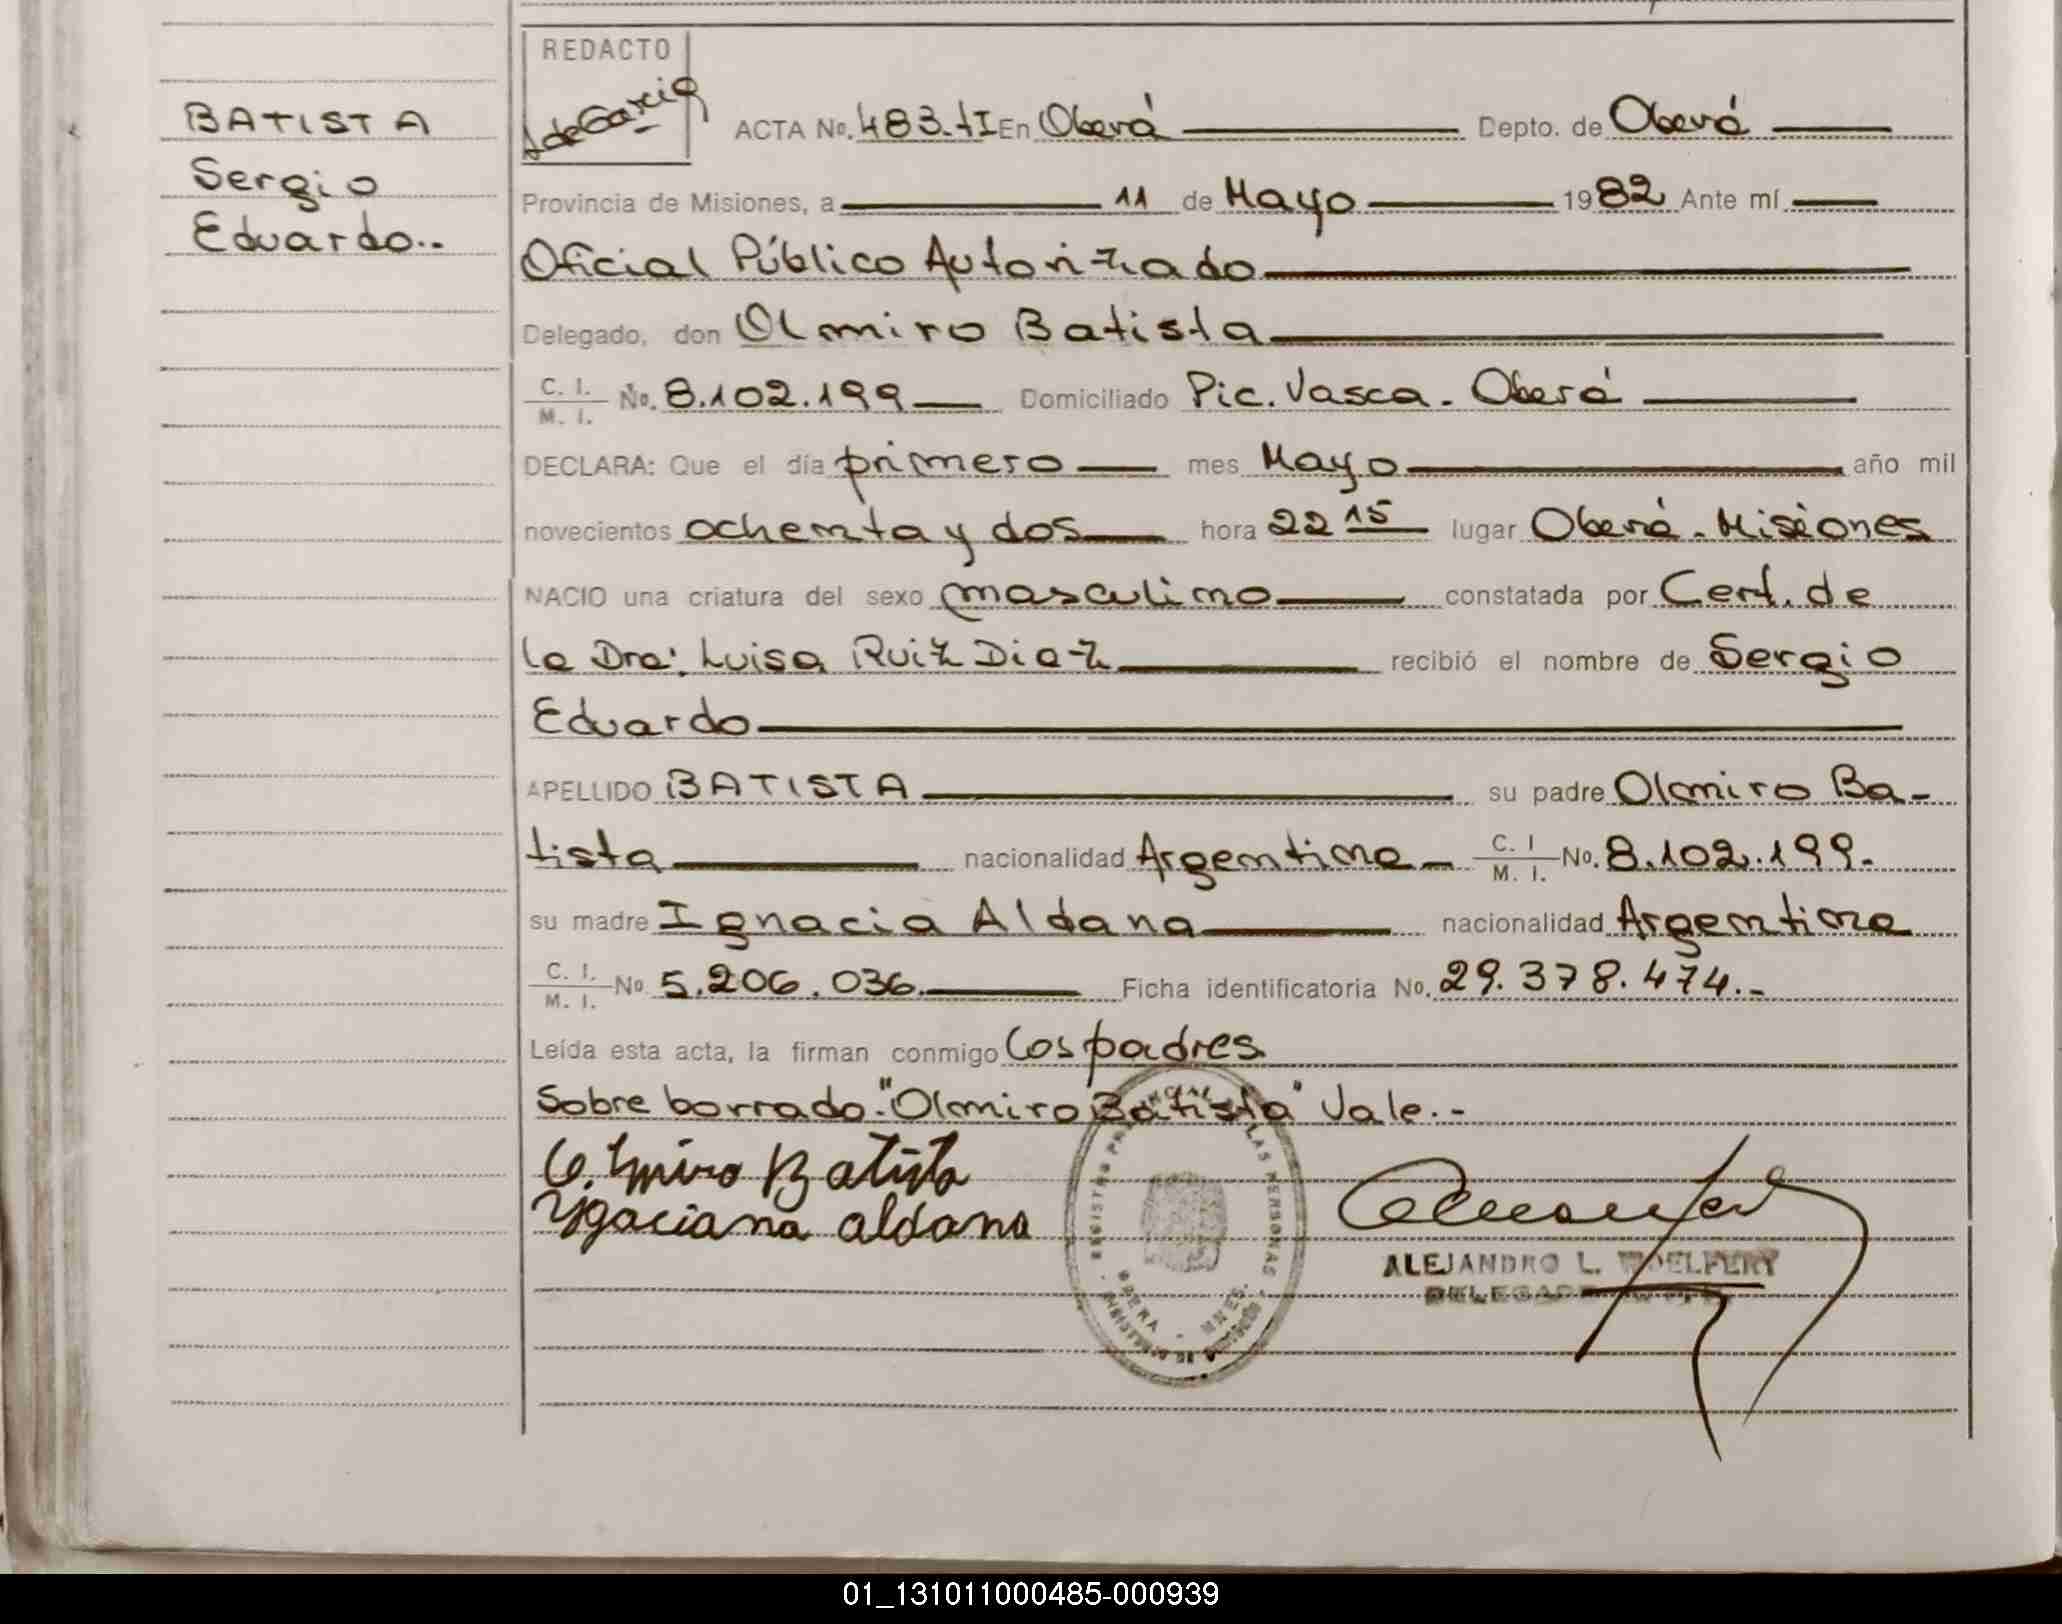 REDACTO
BATISTA
Sergio
Eduardo.-
ACTA No. 483. tI En Oberá Depto. de Oberá
Provincia de Misiones, a 11 de Mayo 1982 Ante mí
Oficial Público Autorizado
Delegado, don Olmiro Batista
C. I. / M. I. No. 8.102.199 Domiciliado Pic. Vasca - Oberá
DECLARA: Que el día primero mes Mayo año mil
novecientos ochenta y dos hora 22 15 lugar Oberá - Misiones
NACIO una criatura del sexo masculino constatada por Cert. de
la Dra. Luisa Ruiz Diaz recibió el nombre de Sergio
Eduardo
APELLIDO BATISTA su padre Olmiro Ba-
tista nacionalidad Argentina C. I / M. I. No. 8.102.199.
su madre Ignacia Aldana nacionalidad Argentina
C. I. / M. I. No 5.206.036. Ficha identificatoria No. 29.378.474.-
Leída esta acta, la firman conmigo los padres
Sobre borrado "Olmiro Batista" Vale.-
Olmiro Batista
Ygaciana aldana
ALEJANDRO L. WOELFERT
REGISTRO PROVINCIAL DE LAS PERSONAS
OBERA - MNES.
01_131011000485-000939